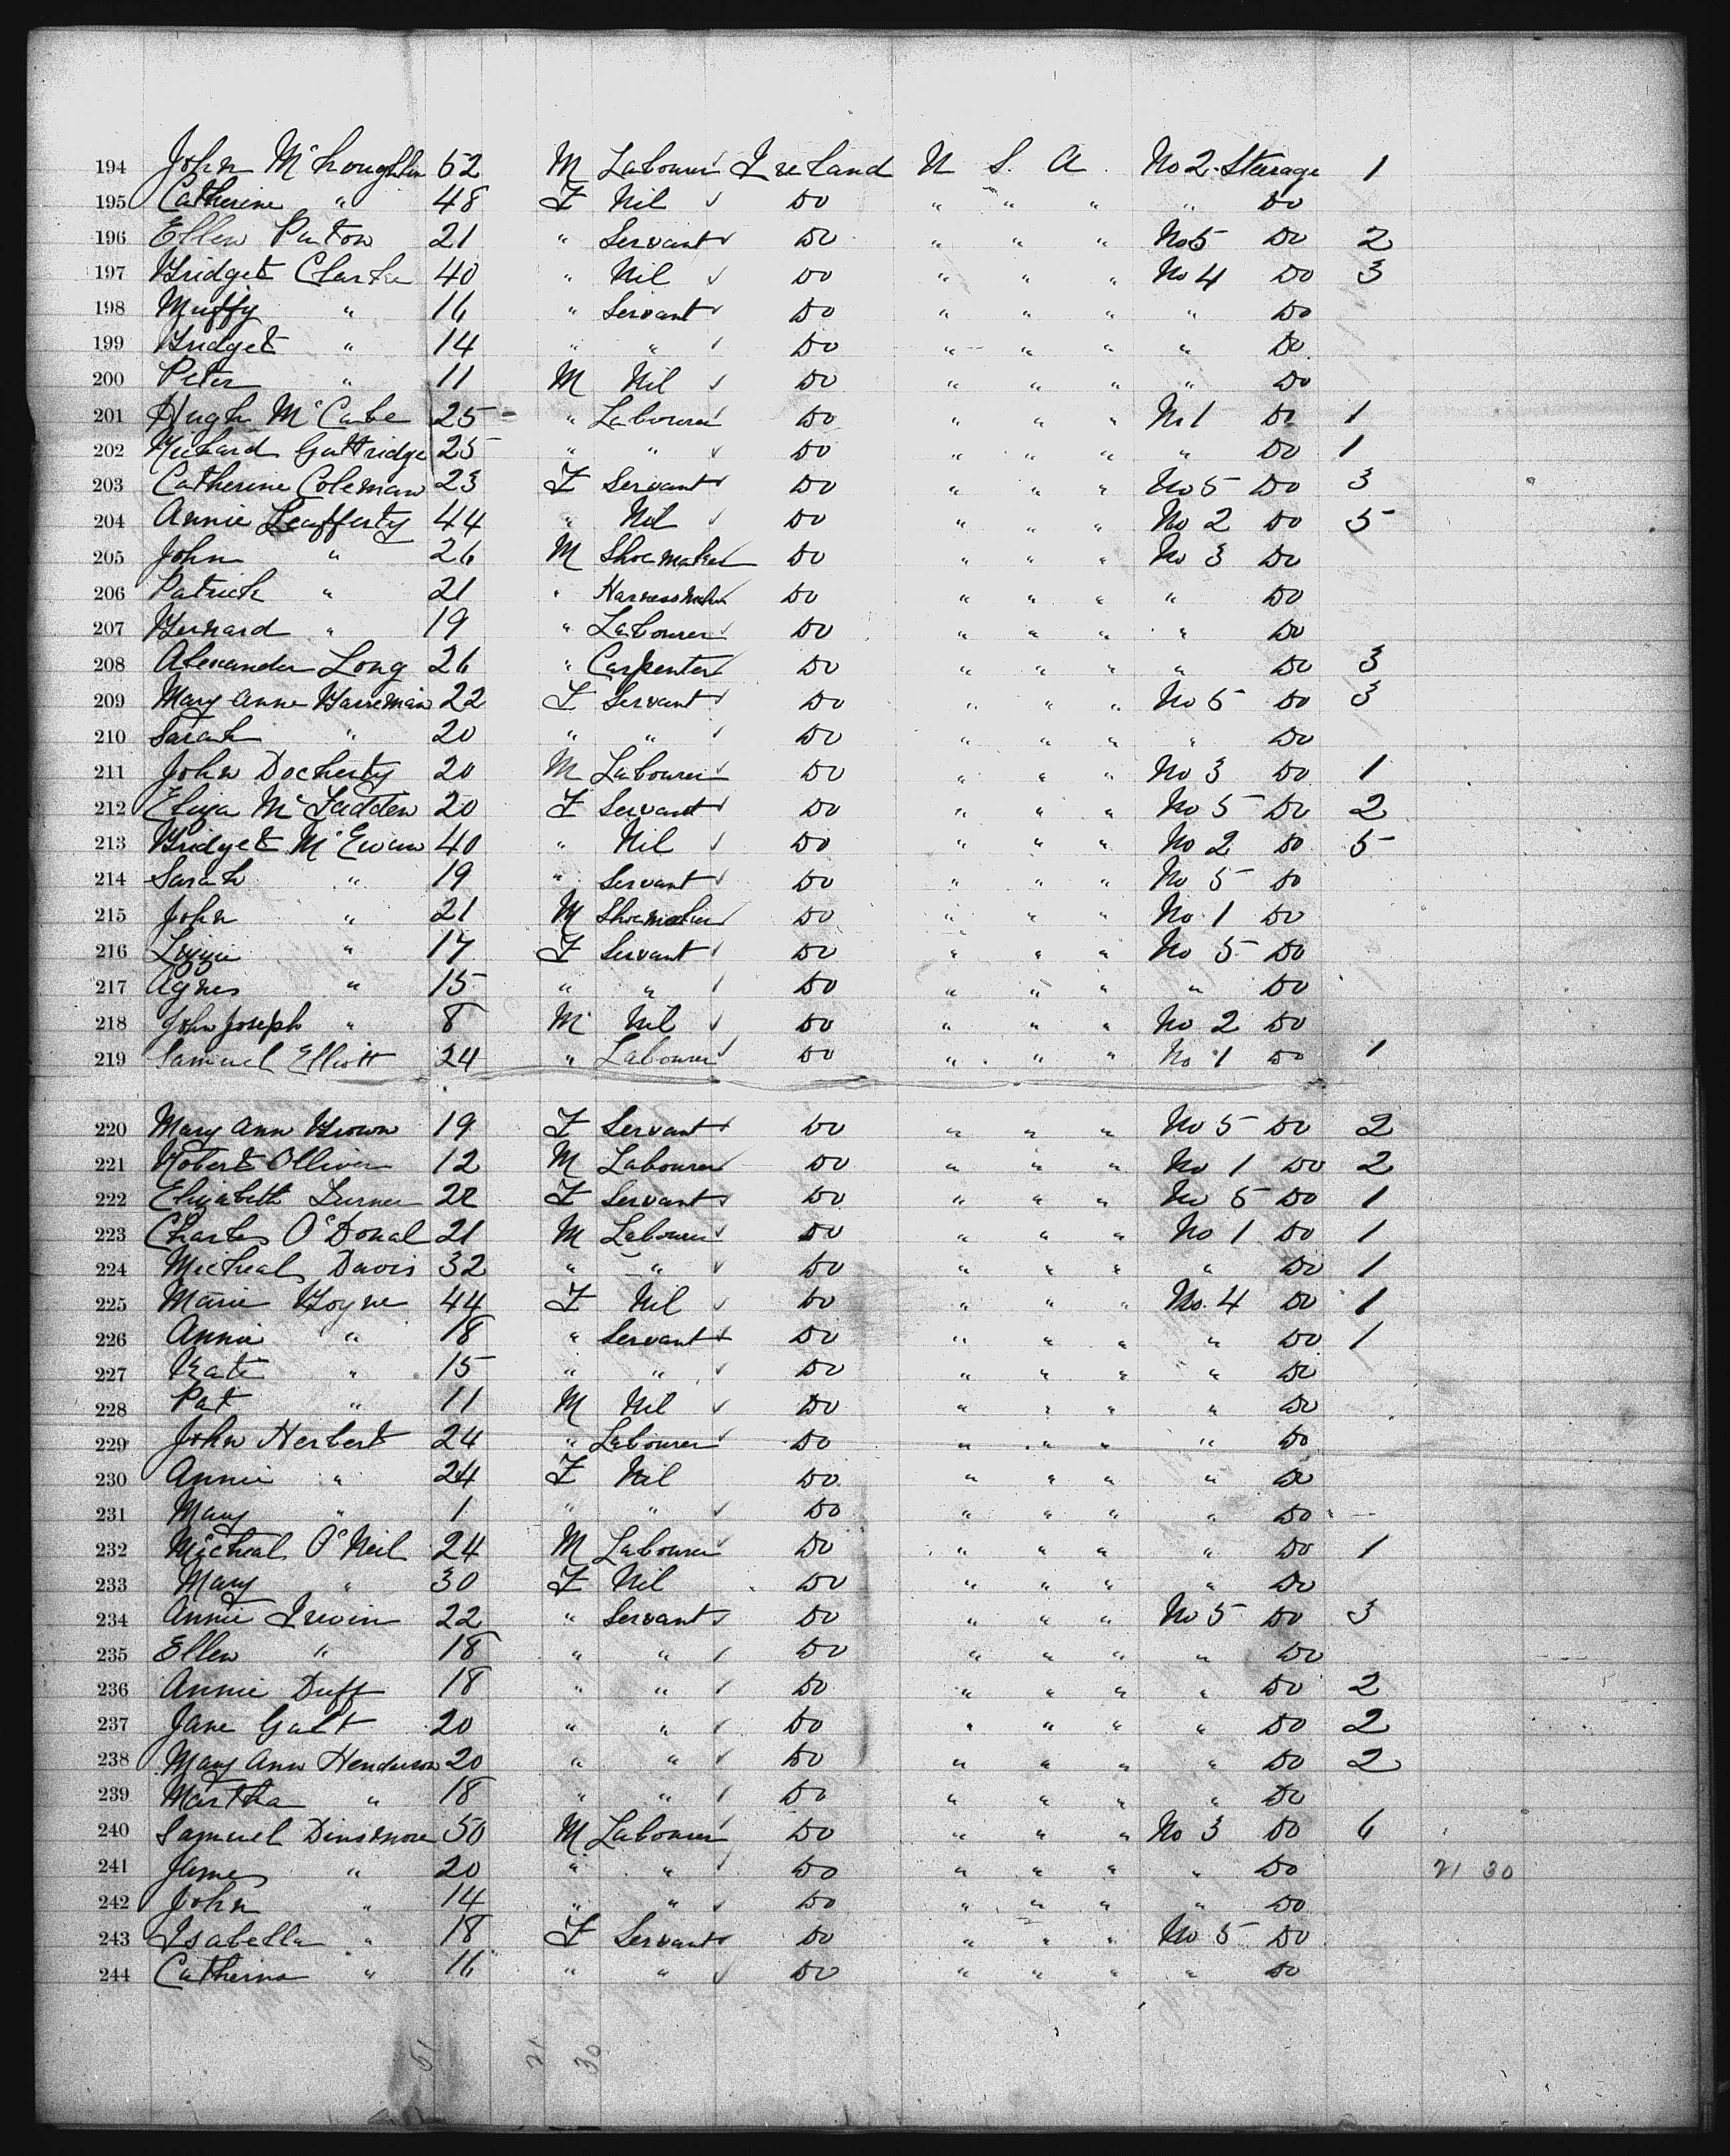 194 John McLoughlin 52 M Labourer Ireland U S. A. No 2 Steerage 1
195 Catherine " 48 F Nil Do " " " " Do
196 Ellen Paton 21 " Servant Do " " " No 5 Do 2
197 Bridget Clarke 40 " Nil Do " " " No 4 Do 3
198 Muffy " 16 " Servant Do " " " " Do
199 Bridget " 14 " " Do " " " " Do
200 Peter " 11 M Nil Do " " " " Do
201 Hugh McCabe 25 " Labourer Do " " " No 1 Do 1
202 Richard Guttridge 25 " " Do " " " " Do 1
203 Catherine Coleman 23 F Servant Do " " " No 5 Do 3
204 Annie Leafferty 44 " Nil Do " " " No 2 Do 5
205 John " 26 M Shoemaker Do " " " No 3 Do
206 Patrick " 21 " Harnessmaker Do " " " " Do
207 Bernard " 19 " Labourer Do " " " " Do
208 Alexander Long 26 " Carpenter Do " " " " Do 3
209 Mary Anne 22 F Servant Do " " " No 5 Do 3
210 Sarah " 20 " " Do " " " " Do
211 John Docherty 20 M Labourer Do " " " No 3 Do 1
212 Eliza McFadden 20 F Servant Do " " " No 5 Do 2
213 Bridget McEwan 40 " Nil Do " " " No 2 Do 5
214 Sarah " 19 " Servant Do " " " No 5 Do
215 John " 21 M Shoemaker Do " " " No 1 Do
216 Lizzie " 17 F Servant Do " " " No 5 Do
217 Agnes " 15 " " Do " " " " Do
218 John Joseph " 8 M Nil Do " " " No 2 Do
219 Samuel Elliott 24 " Labourer Do " " " No 1 Do 1
220 Mary Ann Brown 19 F Servant Do " " " No 5 Do 2
221 Robert Olliver 12 M Labourer Do " " " No 1 Do 2
222 Elizabeth Turner 22 F Servant Do " " " No 5 Do 1
223 Charles O'Donal 21 M Labourer Do " " " No 1 Do 1
224 Micheal Davis 32 " " Do " " " " Do 1
225 Marie Boyne 44 F Nil Do " " " No. 4 Do 1
226 Annie " 18 " Servant Do " " " " Do 1
227 Kate " 15 " " Do " " " " Do
228 Pat " 11 M Nil Do " " " " Do
229 John Herbert 24 " Labourer Do " " " " Do
230 Annie " 24 F Nil Do " " " " Do
231 Mary " 1 " " Do " " " " Do
232 Micheal O'Neil 24 M Labourer Do " " " " Do 1
233 Mary " 30 F Nil Do " " " " Do
234 Annie Irwin 22 " Servant Do " " " No 5 Do 3
235 Ellen " 18 " " Do " " " " Do
236 Annie Duff 18 " " Do " " " " Do 2
237 Jane Galt 20 " " Do " " " " Do 2
238 Mary Ann Henderson 20 " " Do " " " " Do 2
239 Martha " 18 " " Do " " " " Do
240 Samuel Dinsmore 50 M Labourer Do " " " No 3 Do 6
241 James " 20 " " Do " " " " Do 21 30
242 John " 14 " " Do " " " " Do
243 Isabella " 18 F Servant Do " " " No 5 Do
244 Catherine " 16 " " Do " " " " Do
51 21 30